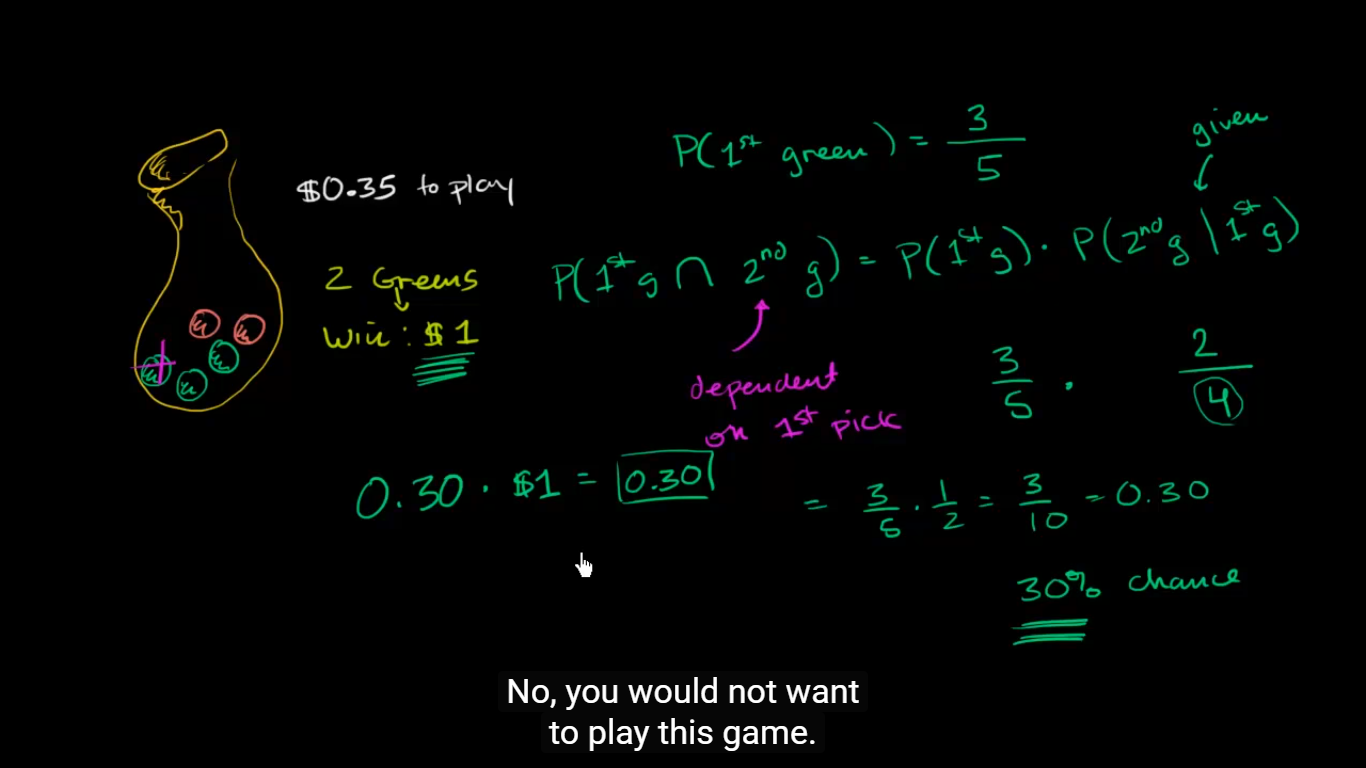 $0.35 to play
2 Greens
Win: $1
P(1st green) = 3/5
given
P(1st g ∩ 2nd g) = P(1st g) · P(2nd g | 1st g)
dependent
on 1st pick
3/5 · 2/4
0.30 · $1 = 0.30
= 3/5 · 1/2 = 3/10 = 0.30
30% chance
No, you would not want
to play this game.